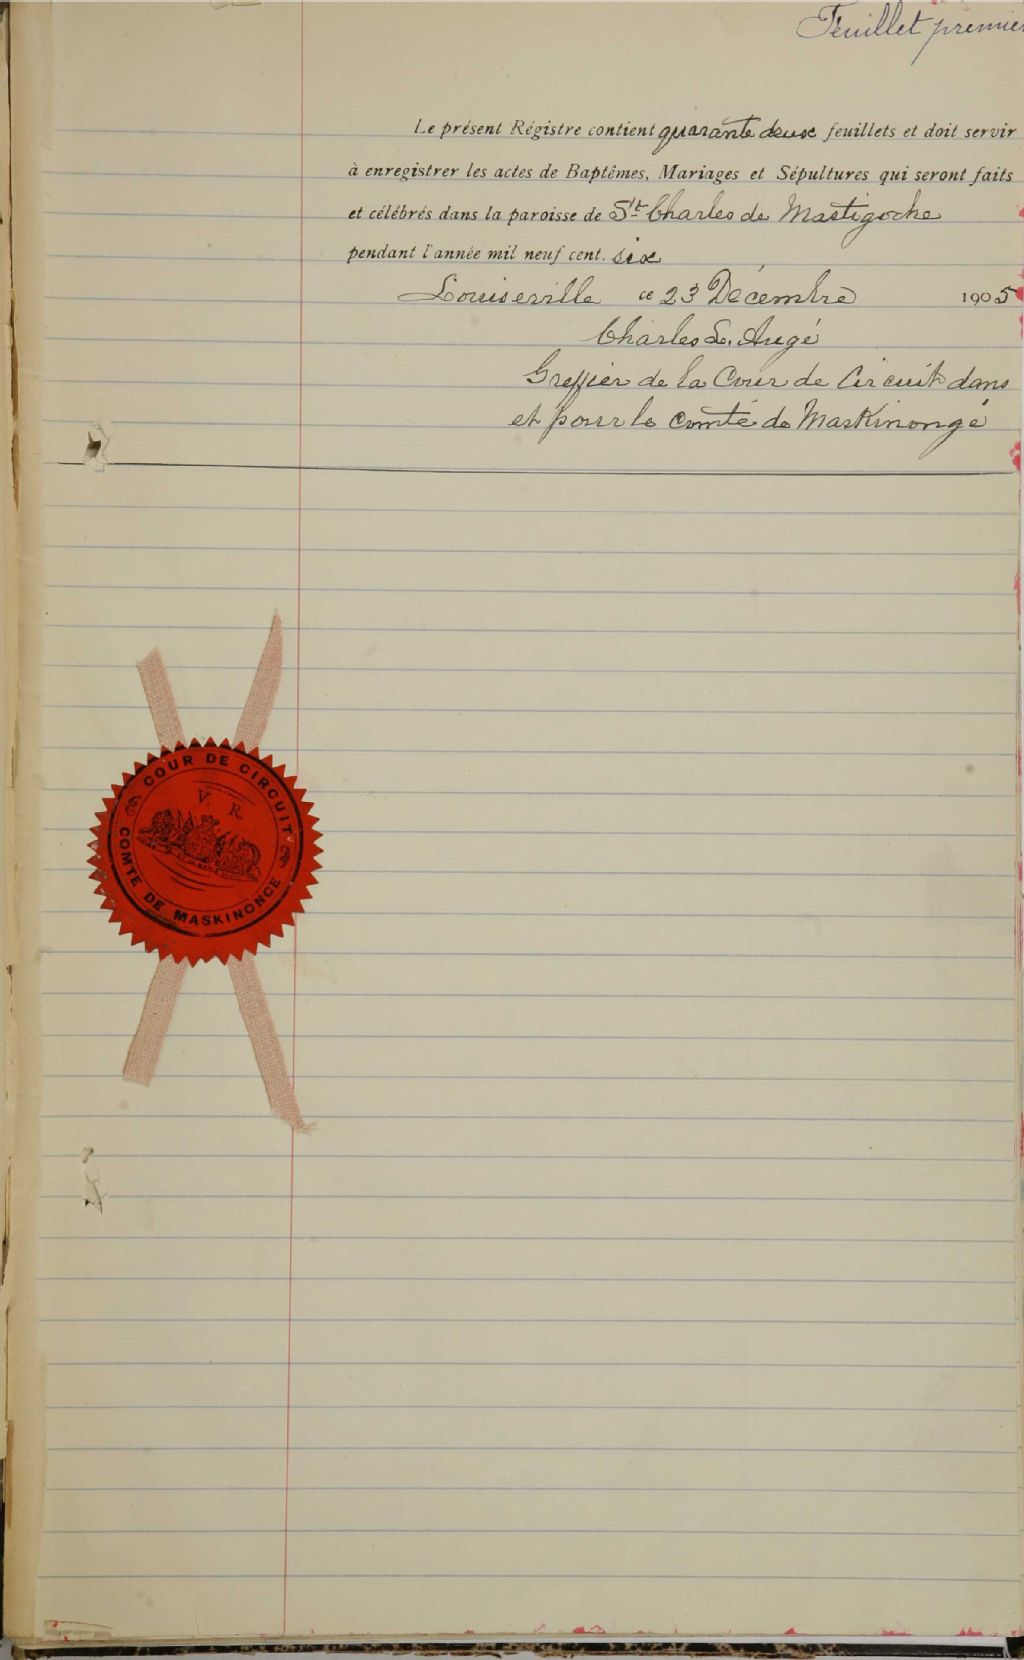 Feuillet premier
Le présent Régistre contient quarante deux feuillets et doit servir
à enregistrer les actes de Baptêmes, Mariages et Sépultures qui seront faits
et célébrés dans la paroisse de St Charles de Mastigoche
pendant l'année mil neuf cent. six
Louiseville ce 23 Décembre 1905
Charles L. Augé
Greffier de la Cour de Circuit dans
et pour le comté de Maskinongé
COUR DE CIRCUIT
V. R.
COMTE DE MASKINONGE